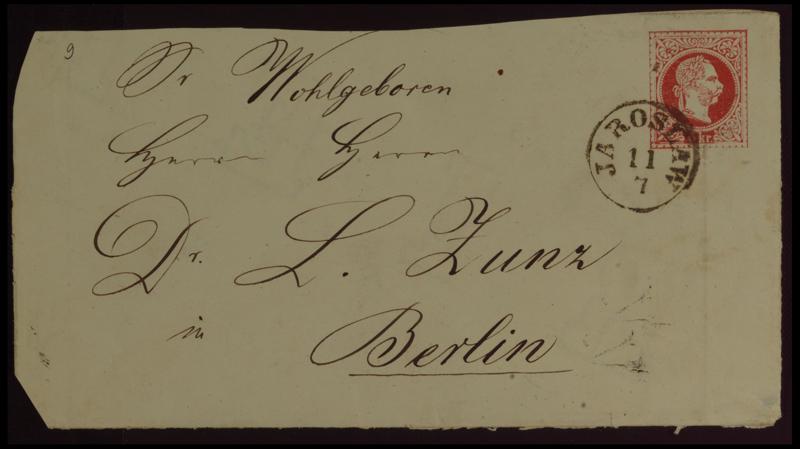 9
Sr Wohlgeboren
Herrn Herrn
Dr. L. Zunz
in
Berlin
JAROSLAW
11
7